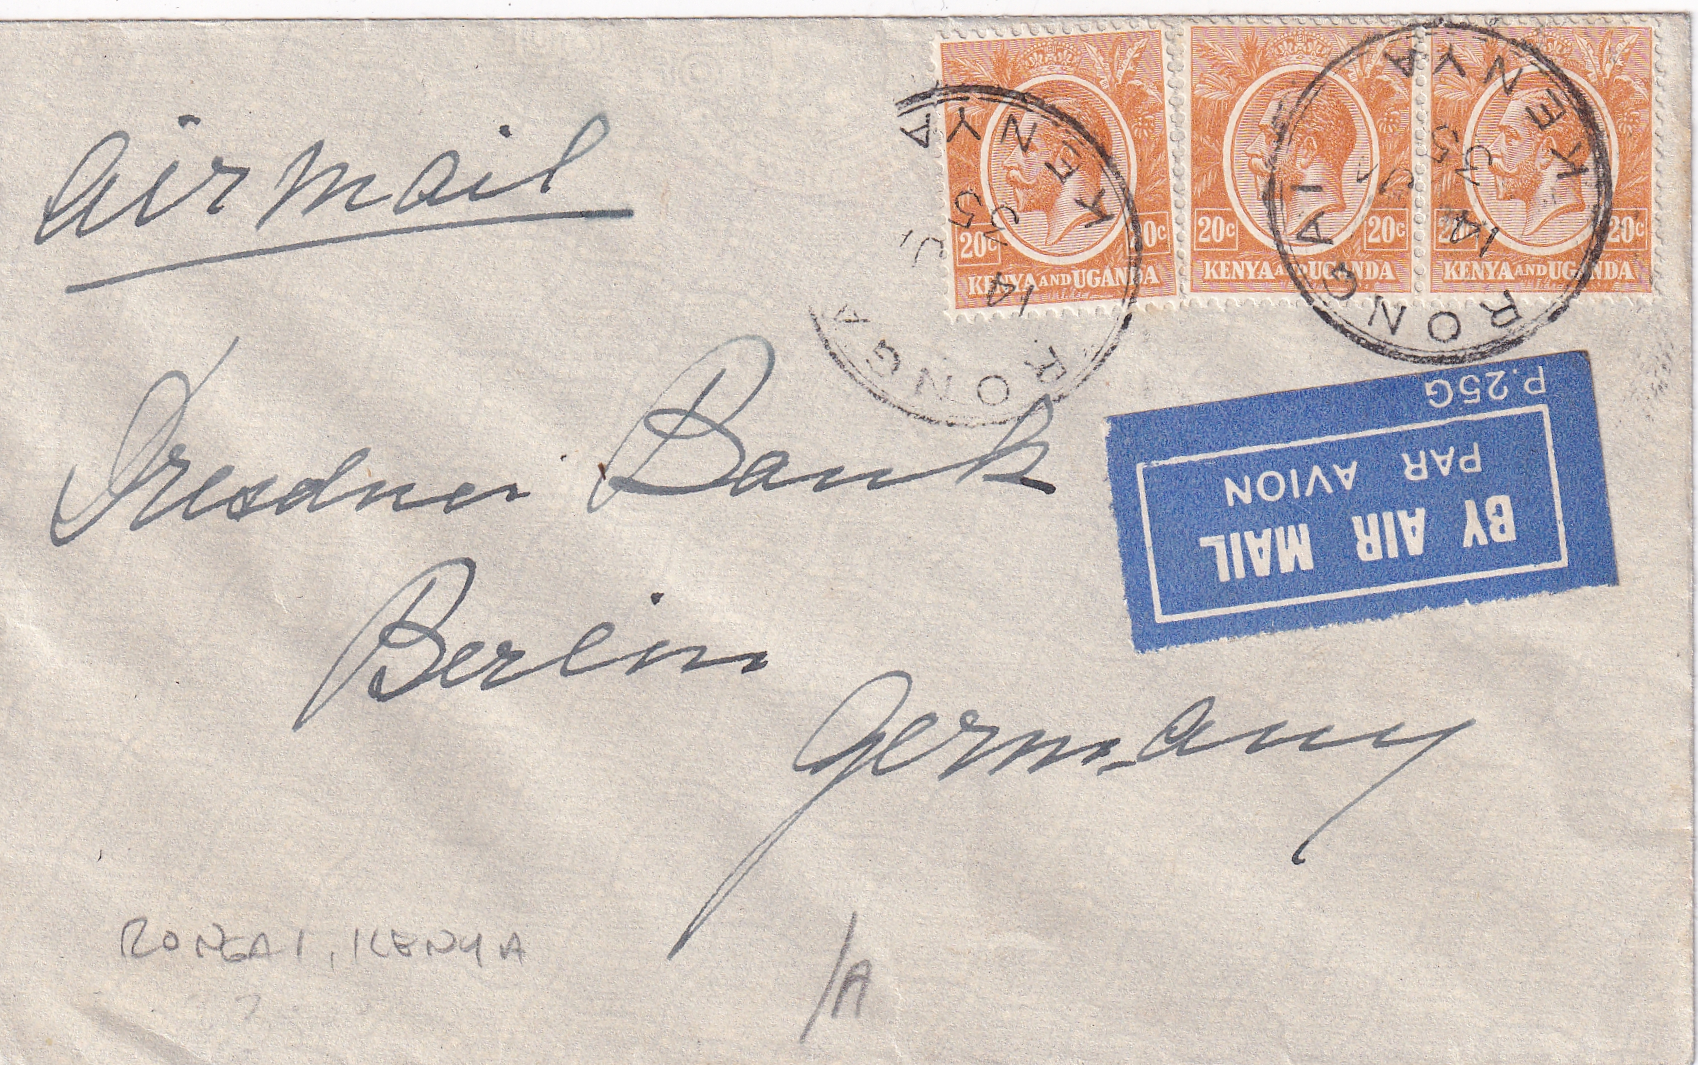 airmail
20c 20c
KENYA AND UGANDA
20c 20c
KENYA AND UGANDA
20c 20c
KENYA AND UGANDA
RONGA
KENYA
14
35
RONGAI
KENYA
14
35
Dresdner Bank
Berlin
Germany
BY AIR MAIL
PAR AVION
P.25G
RONGAI, KENYA
/A